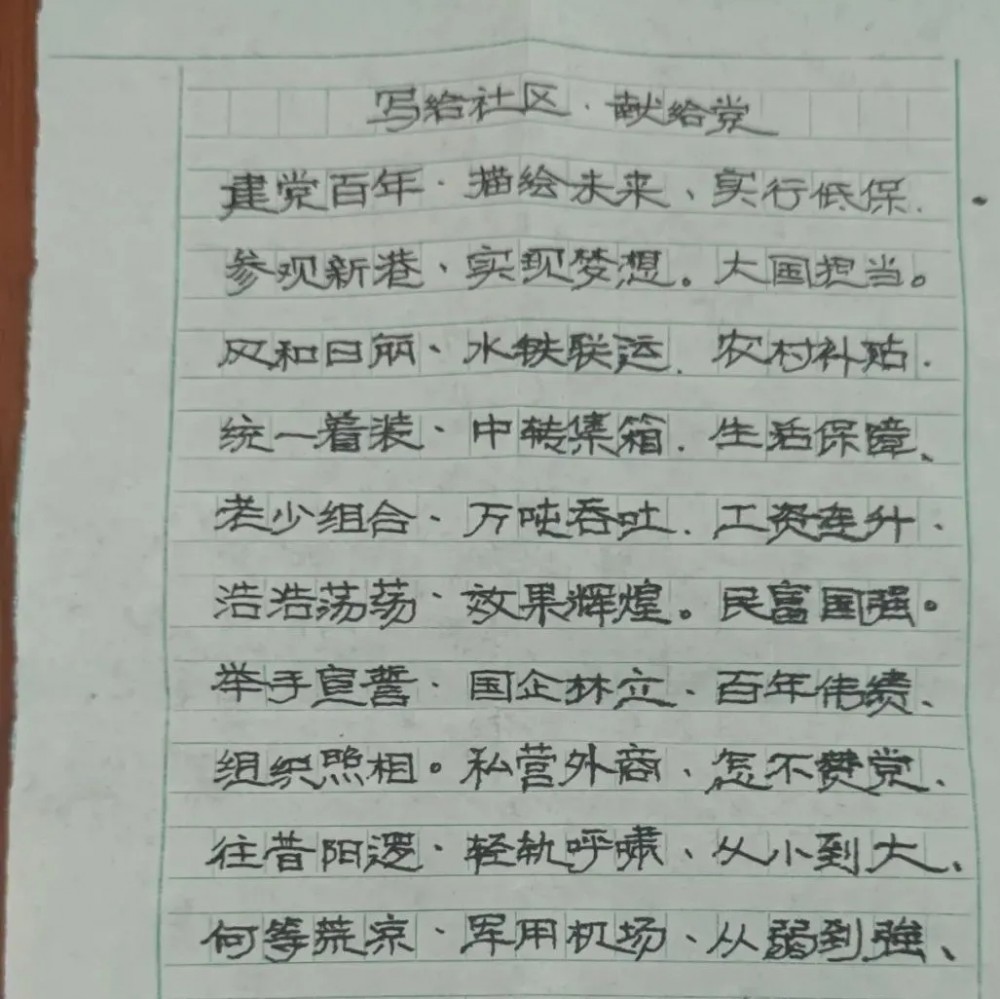 写给社区·献给党
建党百年·描绘未来、实行低保.
参观新港、实现梦想。大国担当。
风和日丽、水铁联运.农村补贴.
统一着装、中转集箱.生活保障、
老少组合、万吨吞吐.工资连升.
浩浩荡荡·效果辉煌。民富国强。
举手宣誓·国企林立、百年伟绩、
组织照相。私营外商、怎不赞党、
往昔阳逻·轻轨呼啸、从小到大、
何等荒凉·军用机场、从弱到強、